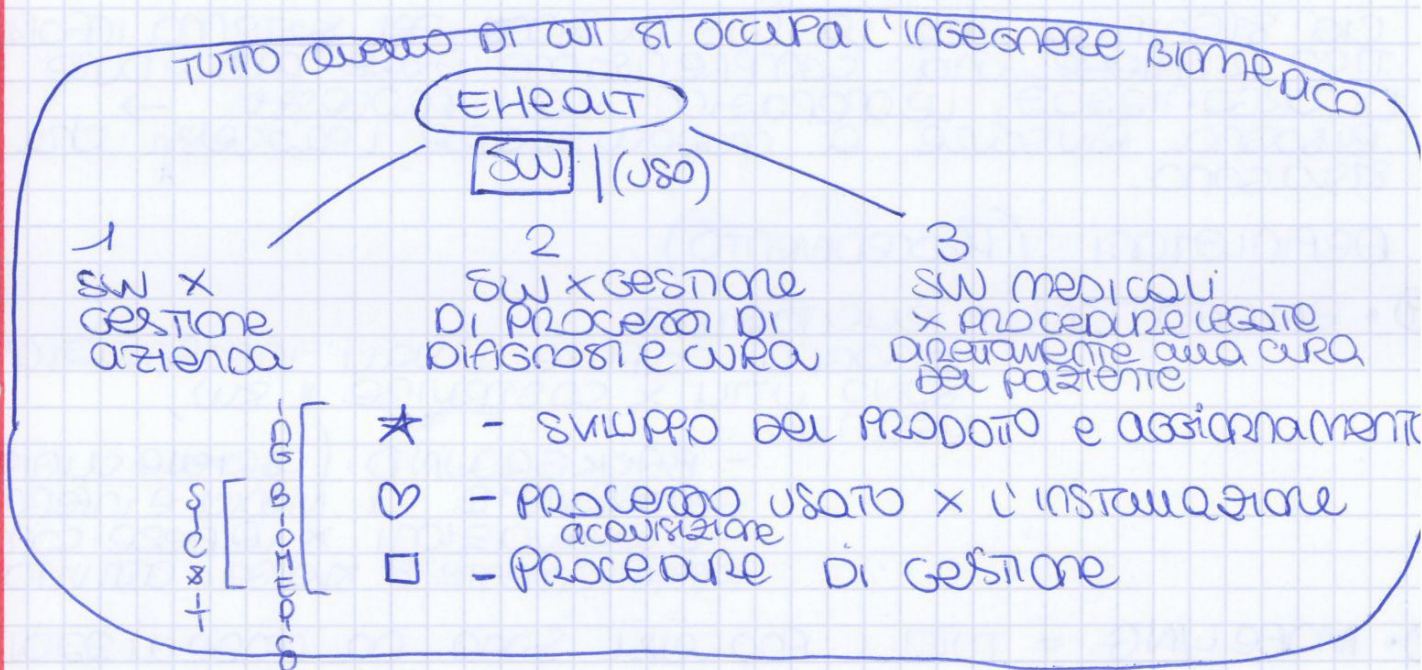 TUTTO QUELLO DI CUI SI OCCUPA L'INGEGNERE BIOMEDICO
EHEALT
SW | (USO)
1
SW X
GESTIONE
AZIENDA
2
SW X GESTIONE
DI PROCESSI DI
DIAGNOSI E CURA
3
SW MEDICALI
X PROCEDURE LEGATE
DIRETTAMENTE ALLA CURA
DEL PAZIENTE
☆ - SVILUPPO DEL PRODOTTO E AGGIORNAMENTO
♡ - PROCESSO USATO X L'INSTALLAZIONE
ACQUISIZIONE
□ - PROCEDURE DI GESTIONE
ING BIOMEDICO